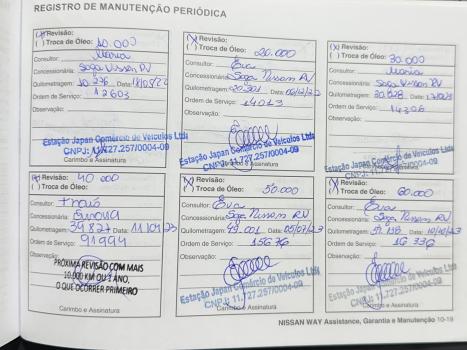 REGISTRO DE MANUTENÇÃO PERIÓDICA
Revisão:
( ) Troca de Óleo: 10.000
Consultor: Maria
Concessionária: Saga Nissan RV
Quilometragem: 10.276 Data:
Ordem de Serviço: 12603
Observação:
Estação Japan Comércio de Veículos Ltda
CNPJ: 11.727.257/0004-09
Carimbo e Assinatura
(X) Revisão:
( ) Troca de Óleo: 20.000
Consultor: Eva
Concessionária: Saga Nissan RV
Quilometragem: 20.201 Data:
Ordem de Serviço: 14013
Observação:
Estação Japan Comércio de Veículos Ltda
CNPJ: 11.727.257/0004-09
Carimbo e Assinatura
(X) Revisão:
( ) Troca de Óleo: 30.000
Consultor: Maria
Concessionária: Saga Nissan RV
Quilometragem: Data:
Ordem de Serviço:
Observação:
Estação Japan Comércio de Veículos Ltda
CNPJ: 11.727.257/0004-09
Carimbo e Assinatura
(X) Revisão: 40 000
( ) Troca de Óleo:
Consultor:
Concessionária:
Quilometragem: 39827 Data: 11/01/23
Ordem de Serviço: 91994
Observação:
PRÓXIMA REVISÃO COM MAIS
10.000 KM OU 1 ANO,
O QUE OCORRER PRIMEIRO
Carimbo e Assinatura
(X) Revisão:
( ) Troca de Óleo: 50.000
Consultor: Eva
Concessionária: Saga Nissan RV
Quilometragem: 49.001 Data: 05/07/23
Ordem de Serviço: 15676
Observação:
Estação Japan Comércio de Veículos Ltda
CNPJ: 11.727.257/0004-09
Carimbo e Assinatura
(X) Revisão:
( ) Troca de Óleo: 60.000
Consultor: Eva
Concessionária: Saga Nissan RV
Quilometragem: Data: 10/10/23
Ordem de Serviço: 16336
Observação:
Estação Japan Comércio de Veículos Ltda
CNPJ: 11.727.257/0004-09
Carimbo e Assinatura
NISSAN WAY Assistance, Garantia e Manutenção 10-19